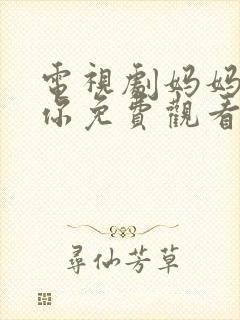 電視劇妈妈
你免費觀看
尋仙芳草